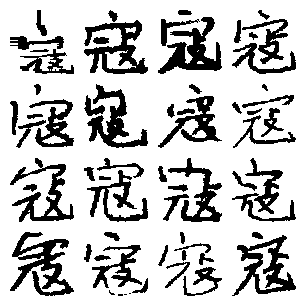 寇寇寇寇
寇寇寇寇
寇寇寇寇
寇寇寇寇